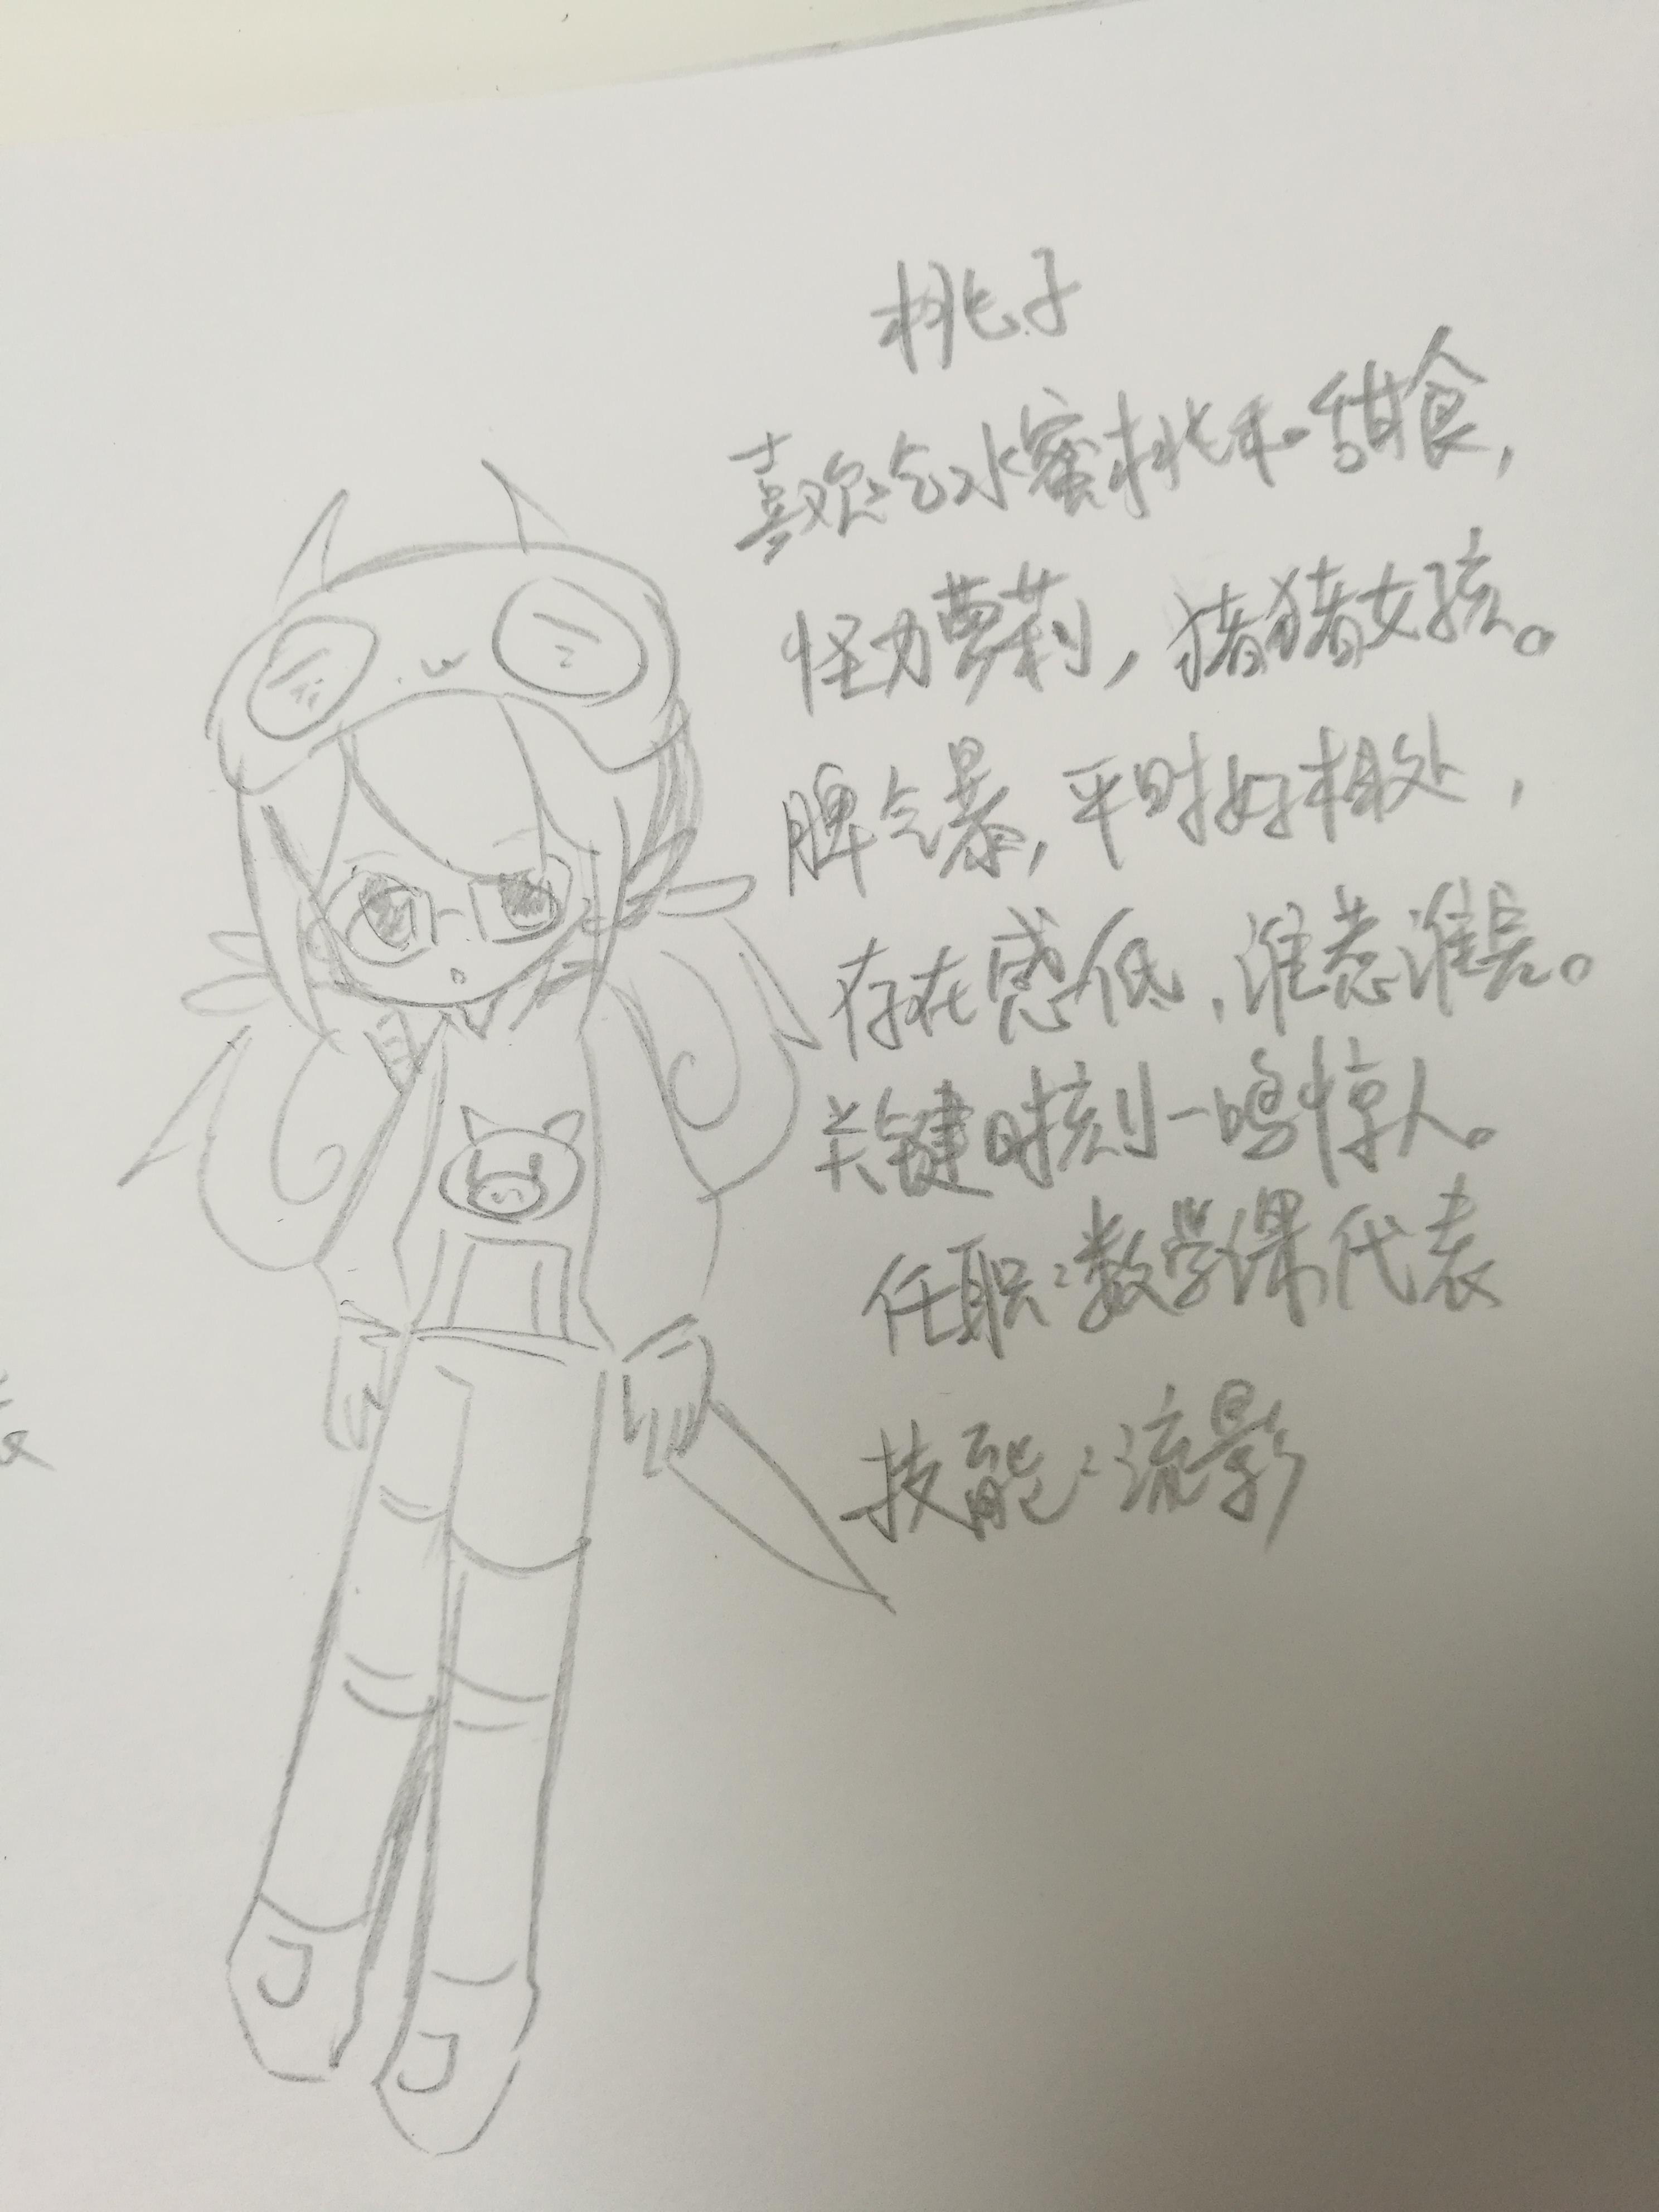 桃子
喜欢吃水蜜桃和甜食,
怪力萝莉,猪猪女孩。
脾气暴,平时好相处,
存在感低,谁惹谁丧。
关键时刻一鸣惊人。
任职:数学课代表
技能:流影